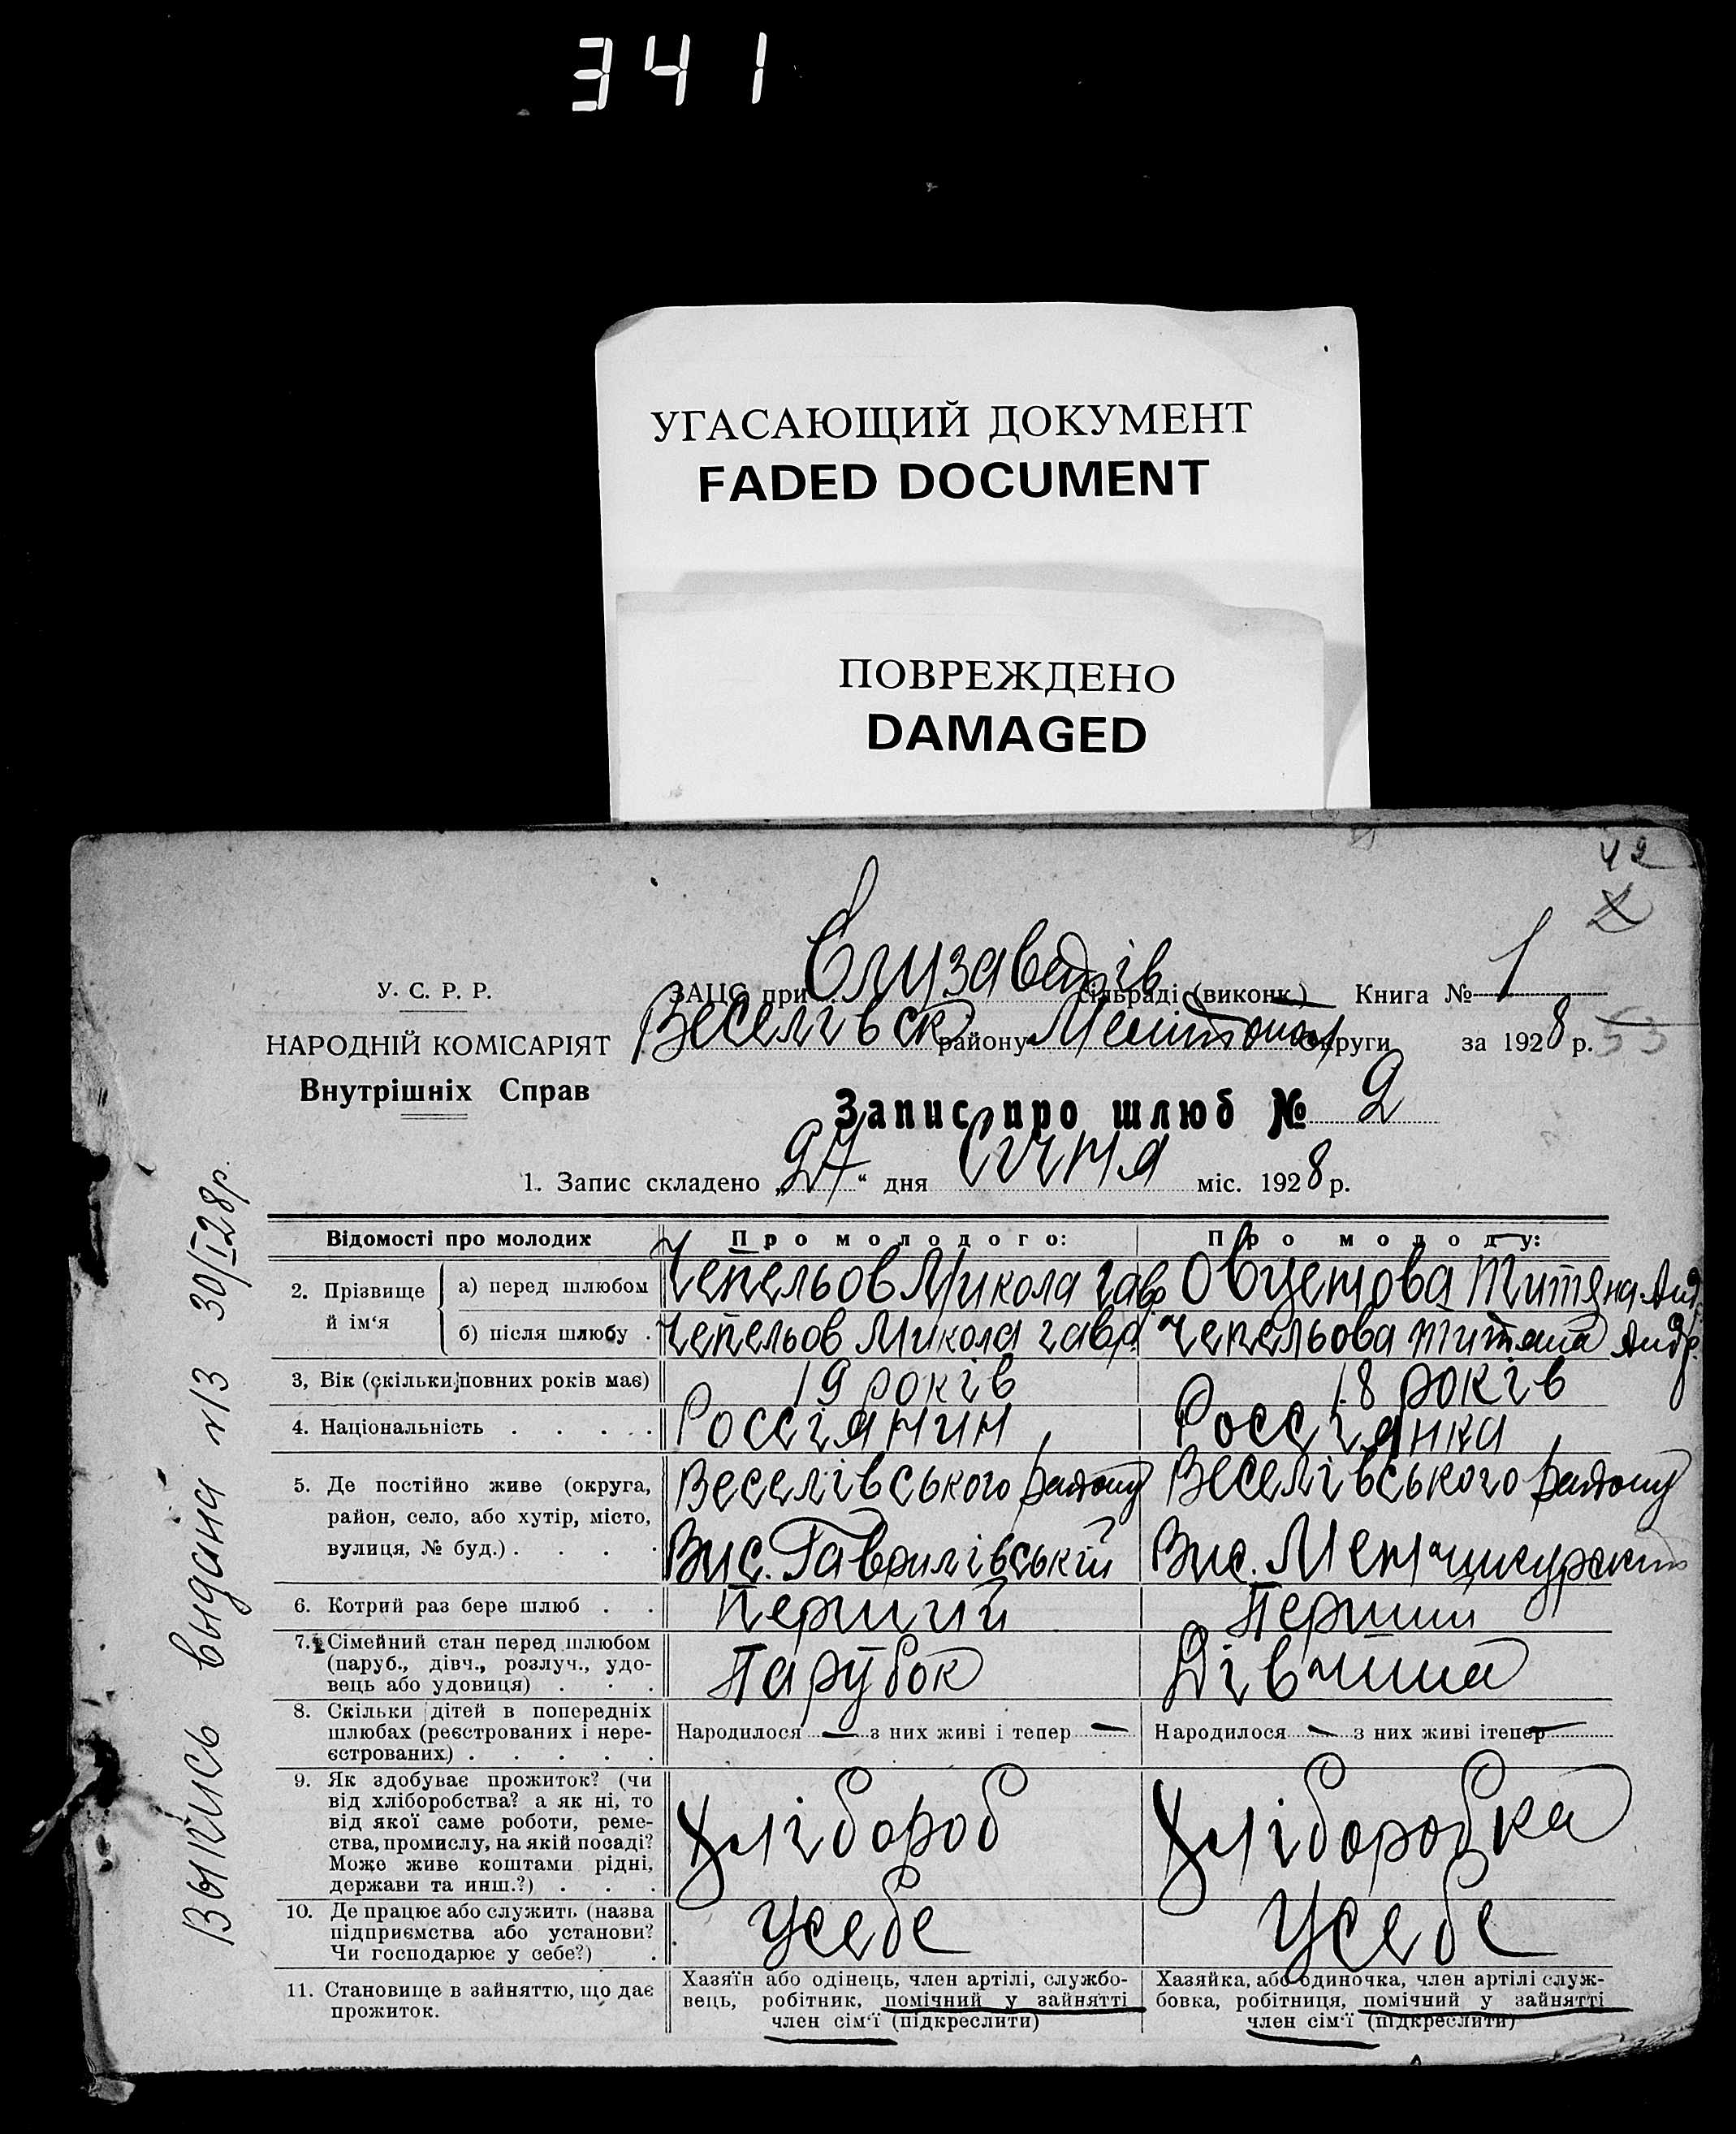 341
УГАСАЮЩИЙ ДОКУМЕНТ
FADED DOCUMENT
ПОВРЕЖДЕНО
DAMAGED
42
У. С. Р. Р.
НАРОДНІЙ КОМІСАРІЯТ
Внутрішніх Справ
ЗАЦС при Єлузаведгів сільраді (виконк.) Книга № 1
Веселівськ району Мелітопол округи за 1928 р. 53
Запис про шлюб № 2
1. Запис складено „27“ дня Січня міс. 1928 р.
Відомості про молодих Про молодого: Про молоду:
2. Прізвище й ім‘я
а) перед шлюбом Чепельов Микола гавр Овцетова Титяна Анд
б) після шлюбу . Чепельов Микола гавр. Чепельова Титяна Андр.
3, Вік (скільки повних років має) 19 років 18 років
4. Національність . . . . . Россіянин Россіянка
5. Де постійно живе (округа, район, село, або хутір, місто, вулиця, № буд.) . . . .
Веселівського району Веселівського району
Вис. Гаврилівський Вис.
6. Котрий раз бере шлюб . . Перший Перший
7. Сімейний стан перед шлюбом
(паруб., дівч., розлуч., удо-
вець або удовиця) . . . Парубок Дівчина
8. Скільки дітей в попередніх
шлюбах (реєстрованих і нере-
єстрованих) . . . . . Народилося — з них живі і тепер — Народилося — з них живі ітепер —
9. Як здобуває прожиток? (чи
від хліборобства? а як ні, то
від якої саме роботи, реме-
ства, промислу, на якій посаді?
Може живе коштами рідні,
держави та инш.?) . . . Хлібороб Хліборобка
10. Де працює або служить (назва
підприємства або установи?
Чи господарює у себе?) . Усебе Усебе
11. Становище в зайняттю, що дає
прожиток.
Хазяїн або одінець, член артілі, службо-
вець, робітник, помічний у зайнятті
член сім‘ї (підкреслити)
Хазяйка, або одиночка, член артілі служ-
бовка, робітниця, помічний у зайнятті
член сім‘ї (підкреслити)
Выпись выдана №13 30/I 28р.